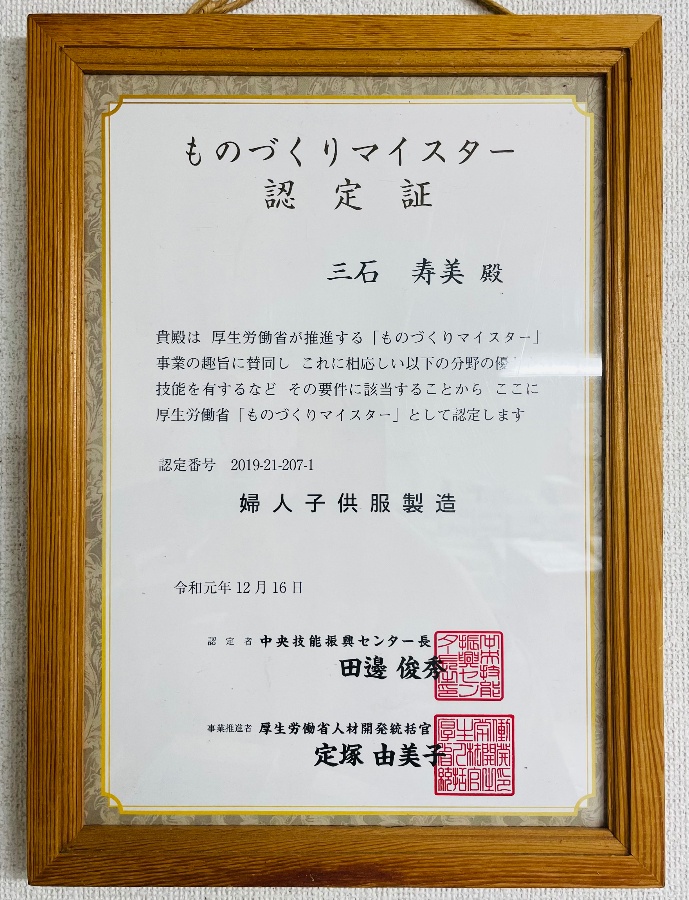 ものづくりマイスター
認定証
三石 寿美 殿
貴殿は 厚生労働省が推進する「ものづくりマイスター」
事業の趣旨に賛同し これに相応しい以下の分野の優
技能を有するなど その要件に該当することから ここに
厚生労働省「ものづくりマイスター」として認定します
認定番号 2019-21-207-1
婦人子供服製造
令和元年12月16日
認定者 中央技能振興センター長
田邊 俊秀
事業推進者 厚生労働省人材開発統括官
定塚 由美子